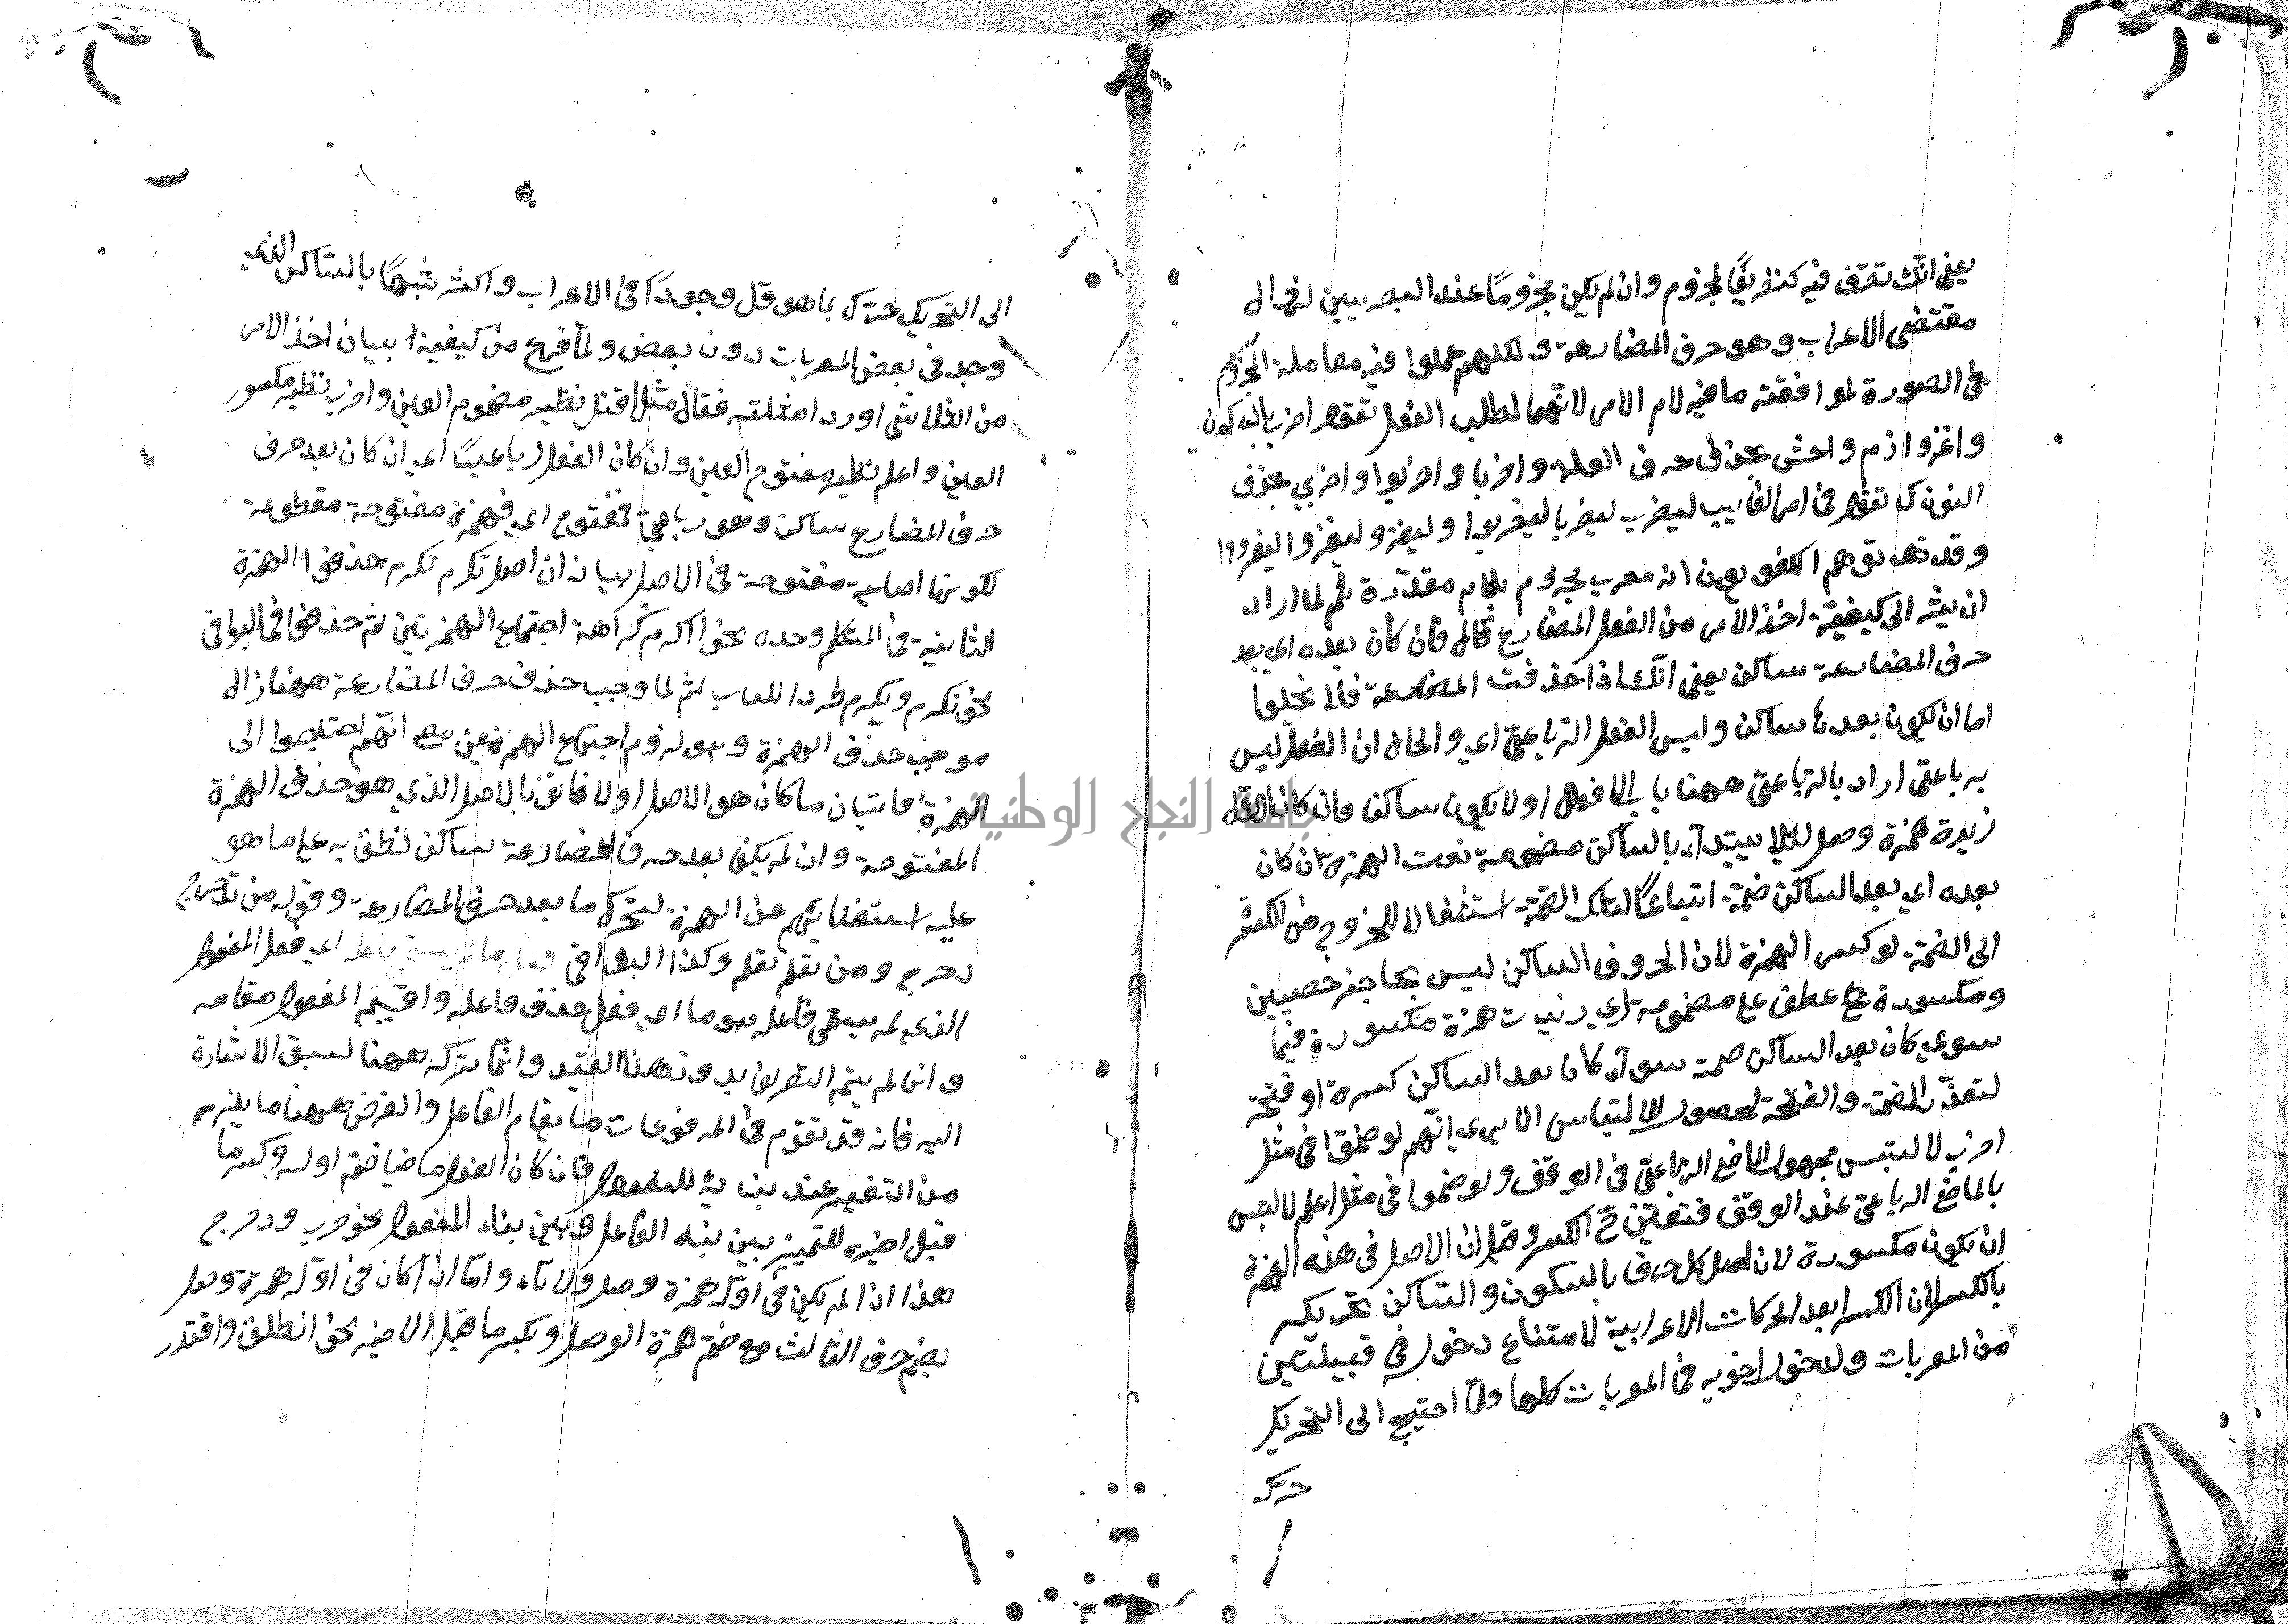 يعني انك تتصرف فيه كتصريفك المجزوم وان لم يكن مجزومًا عند البصريين لزوال
مقتضى الاعراب وهو حرف المضارعة ولكنهم عملوا فيه معاملة المجزوم
في الصورة لموافقته ما فيه لام الامر لانهما لطلب الفعل تقول اضرب بالسكون
واغز وارم واخش بحذف حرف العلة واضربا واضربوا واضربي بحذف
النون كما تقول في امر الغايب ليضرب ليضربا ليضربوا وليغز وليغزوا ليغزووا
وقد توهم الكوفيون انه معرب مجزوم بلام مقدّرة ثم لما اراد
ان يشير الى كيفية اخذ الامر من الفعل المضارع قال فان كان بعده اي بعد
حرف المضارعة ساكن يعني انك اذا حذفت المضارعة فلا يخلوا
اما ان يكون بعدها ساكن وليس الفعل الرباعيّ اي والحال ان الفعل ليس
برباعيّ اراد بالرباعيّ ههنا باب الافعال اولا يكون ساكنا فان كان الاول
زيدة همزة وصل لئلا يبتدأ بالساكن مضمومة نعت الهمزة ان كان
بعده اي بعد الساكن ضمة اتباعًا لتلك الضمة استثقالا للخروج من الكسرة
الى الضمة لو كسر الهمزة لان الحروف الساكن ليس بحاجز حصين
ومكسورة عطف على مضمومة اي زيدت همزة مكسورة فيما
سوى كان بعد الساكن ضمة سواء كان بعد الساكن كسرة او فتحة
لتعذر الضمة والفتحة لحصول الالتباس الا يرى انهم لو ضموا في مثل
اضرب لالتبس بمجهول الماضي الرباعيّ في الوقف ولو ضموا في مثل اعلم لالتبس
بالماضي الرباعيّ عند الوقف فتعين ح الكسر وقيل ان الاصل في هذه الهمزة
ان يكون مكسورة لان اصل كل حرف بالسكون والساكن تحريكه
بالكسر لان الكسر ابعد الحركات الاعرابية لامتناع دخوله في قبيلتين
من المعربات ولدخول اخويه في المعربات كلها فلمّا احتيج الى التحريك
حرّك
الى التحريك حرّك بما هو قل وجودًا في الاعراب واكثر شبهًا بالساكن الذي
وجد في بعض المعربات دون بعض ولما فرغ من كيفية بيان اخذ الامر
من الثلاثي اورد امثلته فقال مثل اقتل نظير مضموم العين واضرب نظير مكسور
العين واعلم نظير مفتوح العين وان كان الفعل رباعيًا اي ان كان بعد حرف
حرف المضارع ساكن وهو رباعيّ فمفتوح اي فهمزة مفتوحة مقطوعة
لكونها اصلية مفتوحة في الاصل بيانه ان اصل تكرم تكرم حذفوا الهمزة
الثانية في المتكلم وحده نحو اكرم كراهة اجتماع الهمزتين ثم حذفوا في البواقي
نحو نكرم ويكرم طردا للباب ثم لما وجب حذف حرف المضارعة ههنا زال
موجب حذف الهمزة وهو لزوم اجتماع الهمزتين مع انهم احتاجوا الى
الهمزة فاتيان ما كان هو الاصل اولا فاتوا بالاصل الذي هو حذف الهمزة
المفتوحة وان لم يكن بعد حرف المضارعة ساكن نطق به على ما هو
عليه استغنائهم عن الهمزة لتحرك ما بعد حرف المضارعة وقوله من تدحرج
دحرج ومن تعلم تعلم وكذا البواقي فعل ما لم يسمّ فاعله اي فعل المفعول
الذي لم يسمّى فاعله هو ما اي فعل حذف فاعله واقيم المفعول مقامه
وان لم يتم التعريف بدون هذا القيد وانما تركه ههنا لسبق الاشارة
اليه فانه قد تقوم في المرفوعات ما يقام الفاعل والغرض ههنا ما يلزم
من التغيير عند بنائه للمفعول فان كان الفعل ماضيا ضمّ اوله وكسر ما
قبل اخره للتمييز بين بناء الفاعل وبين بناء المفعول نحو ضرب ودحرج
هذا ان لم يكن في اوّله همزة وصل ولا تاء وامّا اذا كان في اوّله همزة وصل
يضم حرف الثالث مع ضمّ همزة الوصل وبكسر ما قبل الاخير نحو انطلق واقتدر
جامعة النجاح الوطنية